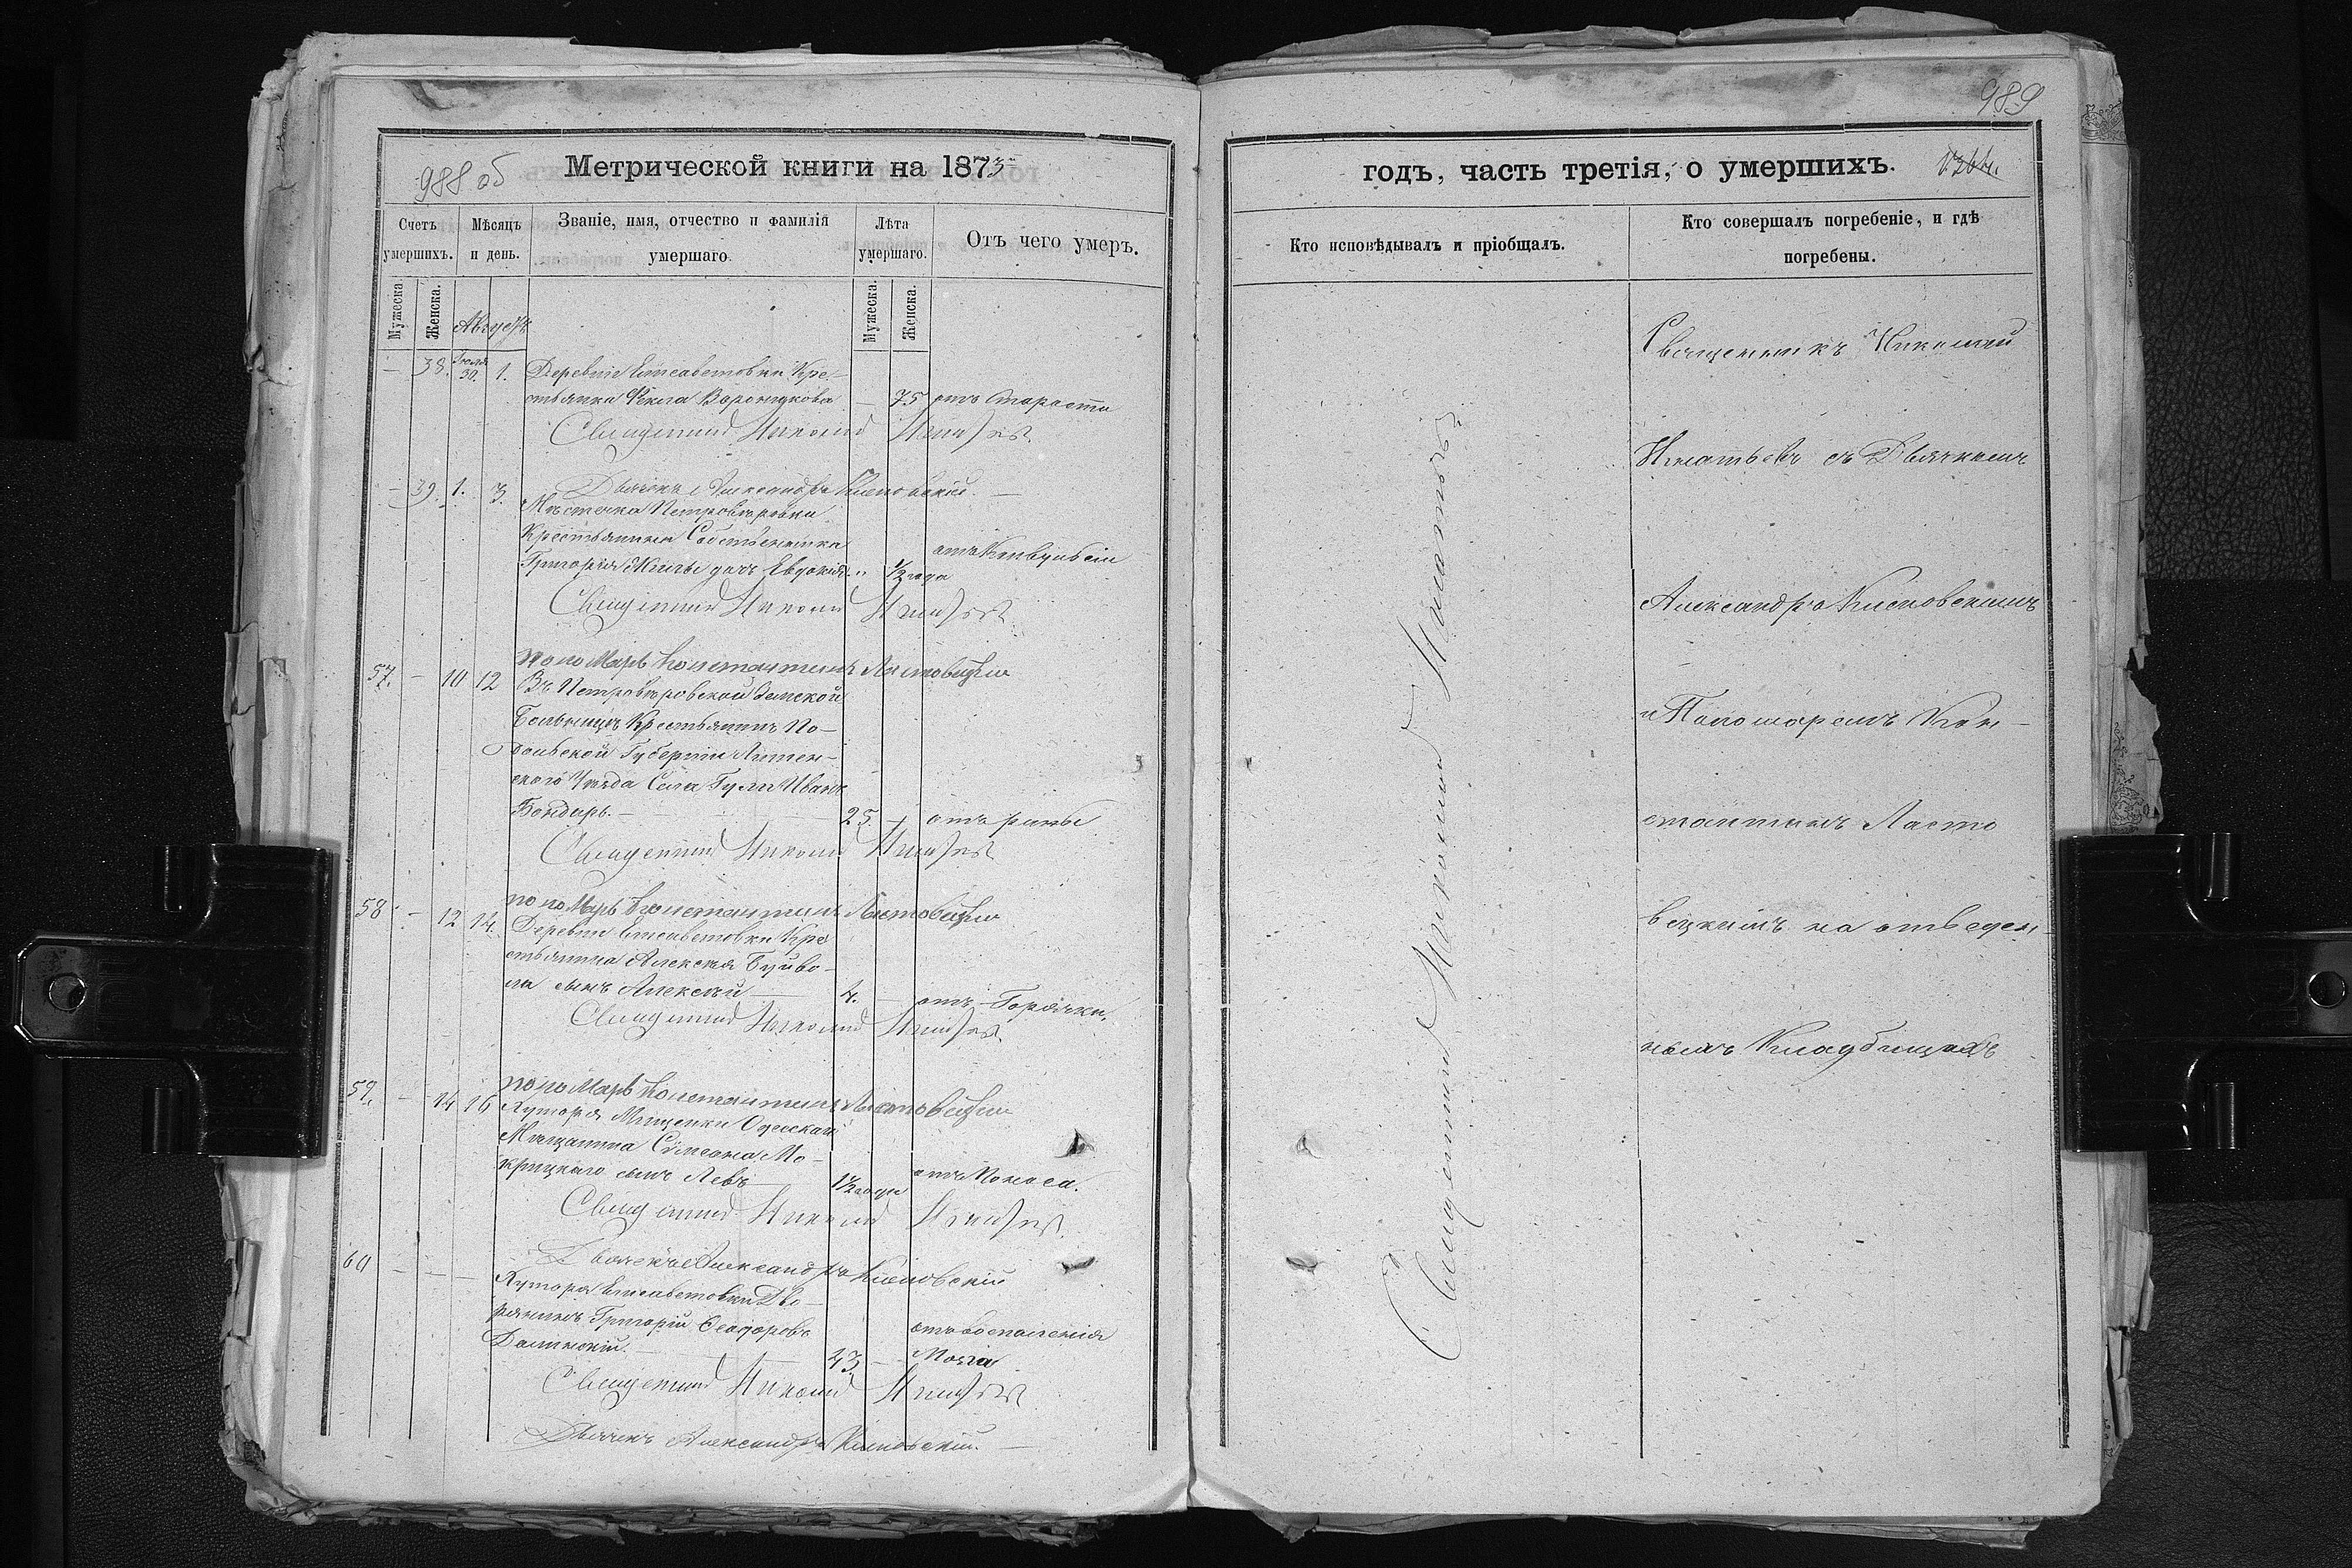 988 об
Метрической книги на 1873
Счетъ умершихъ.
Мѣсяцъ и день.
Званіе, имя, отчество и фамилія умершаго.
Лѣта умершаго.
Отъ чего умеръ.
Мужеска.
Женска.
Августъ
Мужеска.
Женска.
— 38. Іюля 30. 1. Деревни Елисаветовки Кре-
стьянка Фекла Воронцкова — 75 отъ Старости
Священникъ Николай Игнатьевъ
— 39. 1. 3. Дьячекъ Александръ
Мѣстечка Петровѣровки
Крестьянина Собственника
Григорія дочь Евдокія „ 1/2 года отъ Конвульсіи
Священникъ Николай Игнатьевъ
Пономарь Константинъ Ластовецкій
57. — 10 12 Въ Петровѣровской Земской
Больницѣ Крестьянинъ По-
дольской Губерніи
скаго Уѣзда Села Иванъ
Бондарь. — 25. — отъ раны
Священникъ Николай Игнатьевъ
Пономарь Константинъ Ластовецкій
58. — 12 14. Деревни Елисаветовки Кре
стьянина Алексѣя Буйво-
ла сынъ Алексѣй — 4. — отъ Горячки.
Священникъ Николай Игнатьевъ
Пономарь Константинъ Ластовецкій
59. — 14 16 Хутора Мищенки Одесскаго
Мѣщанина Сѵмеона Мо-
крицкаго сынъ Левъ 1 1/2 года отъ Поноса.
Священникъ Николай Игнатьевъ
Дьячекъ Александръ
60 — — — Хутора Елисаветовки Дво-
рянинъ Григорій Ѳеодоровъ отъ воспаленія
Долинскій. — 43. — Мозга
Священникъ Николай Игнатьевъ
Дьячекъ Александръ
989
годъ, часть третія, о умершихъ.
Кто исповѣдывалъ и пріобщалъ.
Кто совершалъ погребеніе, и гдѣ
погребены.
Священникъ Николай Игнатьевъ
Священникъ Николай
Игнатьевъ съ Дьячкомъ
Александромъ
и Пономаремъ Кон-
стантиномъ Ласто
вецкимъ на отведен-
номъ Кладбищахъ